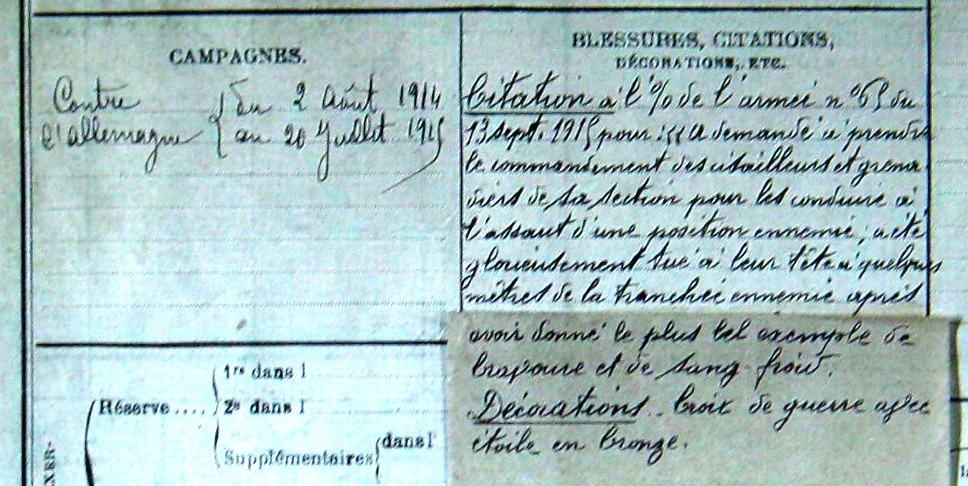 CAMPAGNES.
Contre
l'allemagne
du 2 Août 1914
au 20 Juillet 1915
BLESSURES, CITATIONS,
DÉCORATIONS, ETC.
Citation à l'% de l'armeé n°65 du
13 sept. 1915 pour : "a demandé à prendre
le commandement des cisailleurs et grena
diers de sa section pour les conduire à
l'assaut d'une position ennemie, a été
glorieusement tué à leur tête à quelques
mètres de la tranchée ennemie après
avoir donné le plus bel exemple de
bravoure et de sang froid.
Décorations. Croix de guerre avec
étoile en bronze.
1re dans l
Réserve .... 2e dans l
Supplémentaires dans l'
EXER-